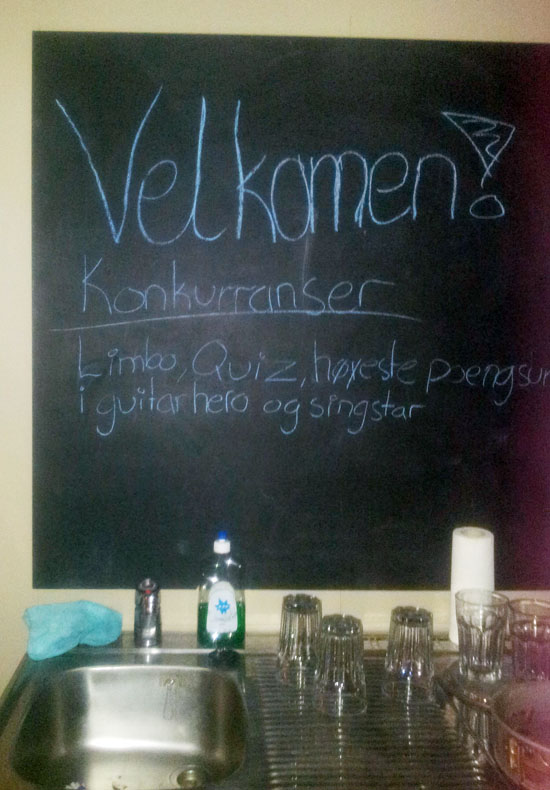 Velkomen!
Konkurranser
Limbo, Quiz, høyeste poengsu
i guitar hero og singstar